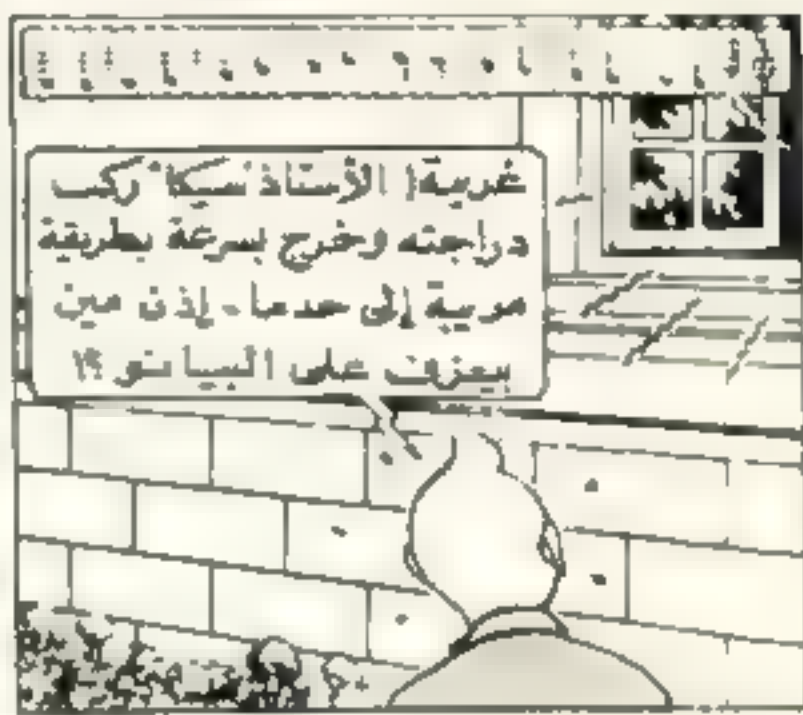 غريبة! الأستاذ "سيكا" ركب
دراجته وخرج بسرعة بطريقة
مريبة إلى حد ما. إذن مين
بيعزف على البيانو ؟!